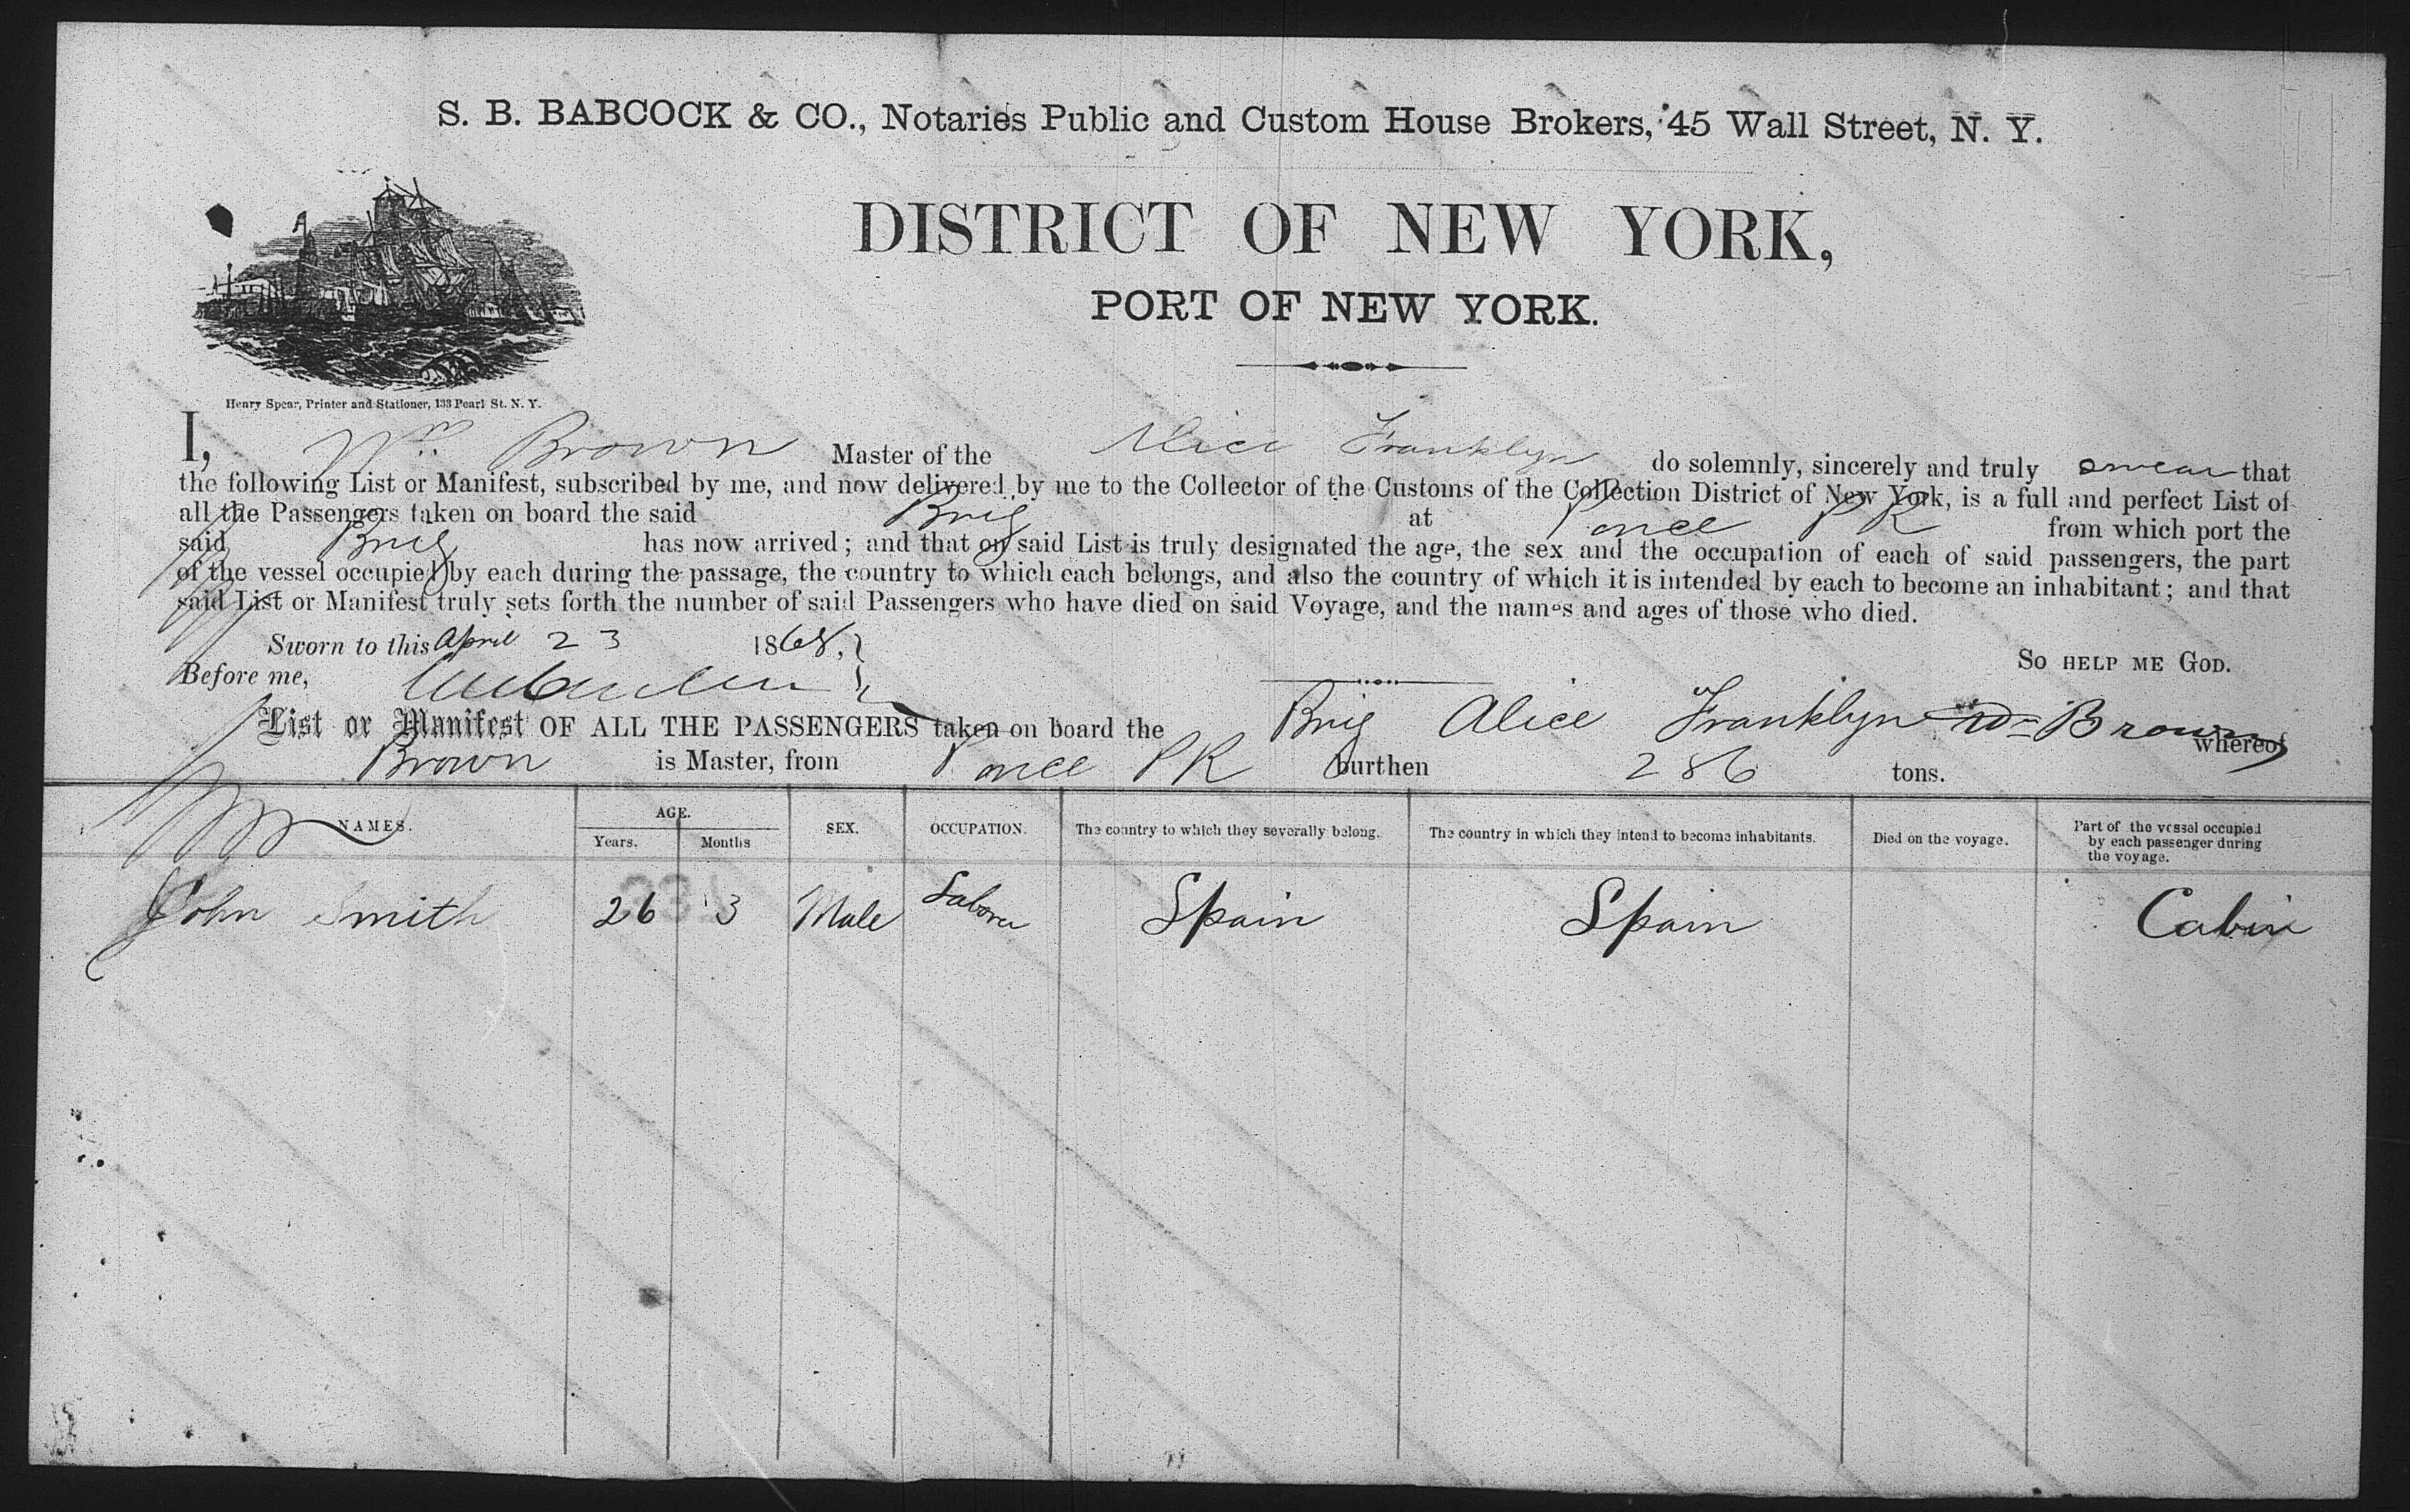 S. B. BABCOCK & CO., Notaries Public and Custom House Brokers, 45 Wall Street, N. Y.
DISTRICT OF NEW YORK,
PORT OF NEW YORK.
Henry Spear, Printer and Stationer, 133 Pearl St. N. Y.
I, Wm Brown Master of the Alice Franklyn do solemnly, sincerely and truly swear that
the following List or Manifest, subscribed by me, and now delivered by me to the Collector of the Customs of the Collection District of New York, is a full and perfect List of
all the Passengers taken on board the said Brig at Ponce P R from which port the
said Brig has now arrived; and that on said List is truly designated the age, the sex and the occupation of each of said passengers, the part
of the vessel occupied by each during the passage, the country to which each belongs, and also the country of which it is intended by each to become an inhabitant; and that
said List or Manifest truly sets forth the number of said Passengers who have died on said Voyage, and the names and ages of those who died.
Sworn to this April 23 1868,
So HELP ME GOD.
Before me,
Wm Brown
List or Manifest OF ALL THE PASSENGERS taken on board the Brig Alice Franklyn whereof
Brown is Master, from Ponce P R burthen 286 tons.
NAMES. AGE. Years. Months SEX. OCCUPATION. The country to which they severally belong. The country in which they intend to become inhabitants. Died on the voyage. Part of the vessel occupied by each passenger during the voyage.
John Smith 26 3 Male Laborer Spain Spain Cabin